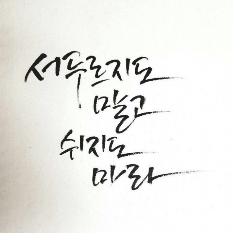 서두르지도
말고
쉬지도
마라